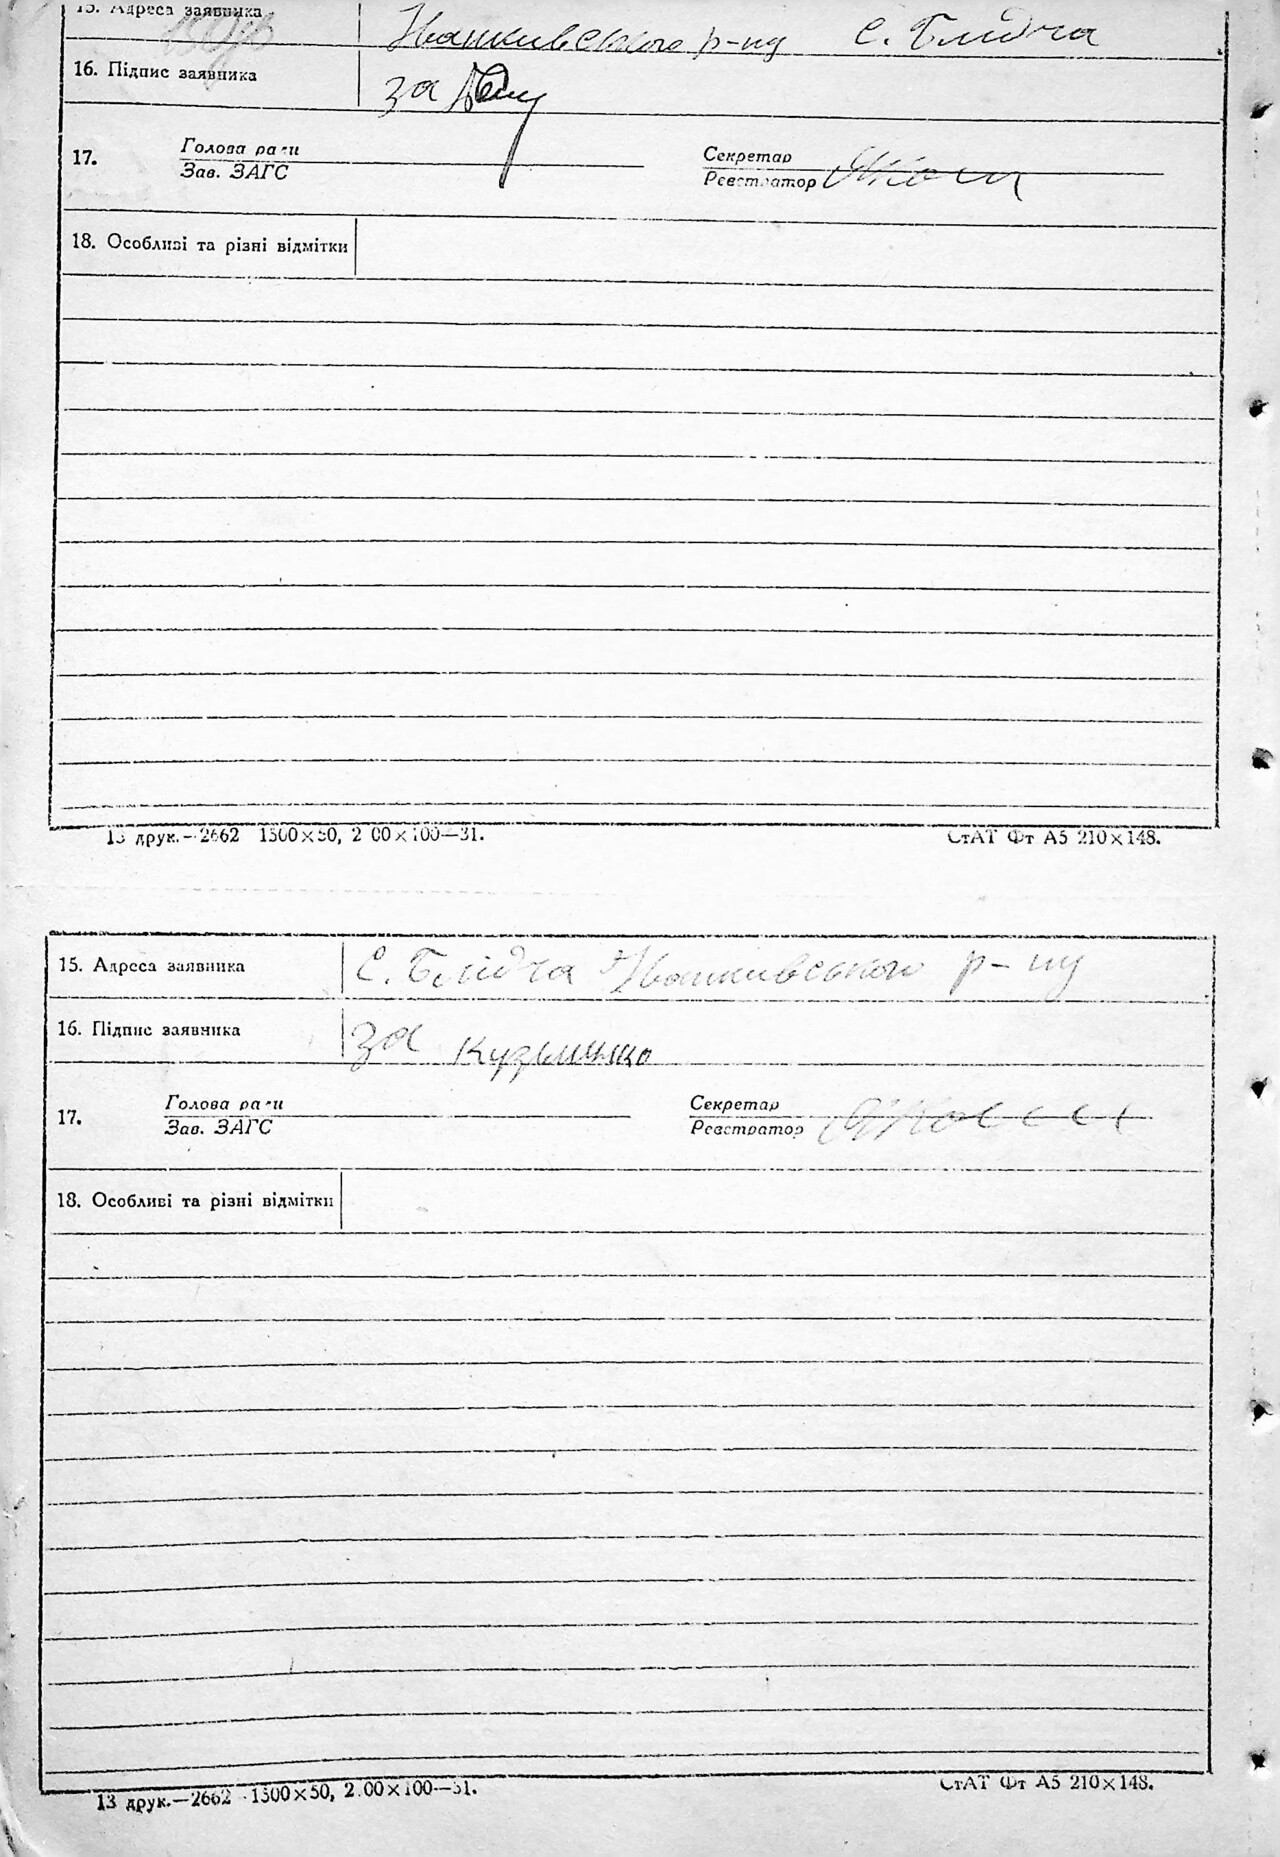 15. Адреса заявника Іванківського р-ну с. Блідча
16. Підпис заявника за
17. Голова ради Секретар
Зав. ЗАГС Реєстратор
18. Особливі та різні відмітки
13 друк.—2662 1500×50, 2 00×100—31. СтАТ Фт А5 210×148.
15. Адреса заявника с. Блідча Іванківського р-ну
16. Підпис заявника за Кузьменко
17. Голова ради Секретар
Зав. ЗАГС Реєстратор
18. Особливі та різні відмітки
13 друк.—2662 1500×50, 2.00×100—31. СтАТ Фт А5 210×148.